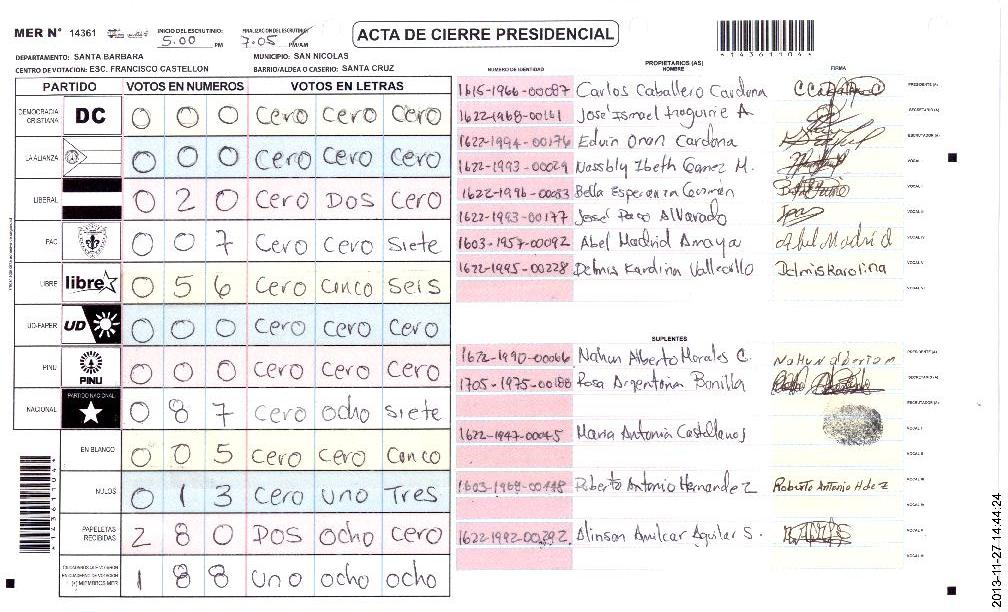 MER N° 14361 INICIO DEL ESCRUTINIO: 5.00 PM FINALIZACION DEL ESCRUTINIO: 7.05 PM/AM
ACTA DE CIERRE PRESIDENCIAL
DEPARTAMENTO: SANTA BARBARA MUNICIPIO: SAN NICOLAS
CENTRO DE VOTACION: ESC. FRANCISCO CASTELLON BARRIO/ALDEA O CASERIO: SANTA CRUZ
PARTIDO VOTOS EN NUMEROS VOTOS EN LETRAS
DEMOCRACIA CRISTIANA DC 0 0 0 Cero Cero Cero
LA ALIANZA 0 0 0 Cero Cero Cero
LIBERAL 0 2 0 Cero Dos Cero
PAC 0 0 7 Cero Cero Siete
LIBRE libre 0 5 6 Cero Cinco Seis
UD-FAPER UD 0 0 0 Cero Cero Cero
PINU PINU 0 0 0 Cero Cero Cero
NACIONAL PARTIDO NACIONAL 0 8 7 Cero ocho Siete
EN BLANCO 0 0 5 Cero Cero Cinco
NULOS 0 1 3 Cero uno Tres
PAPELETAS RECIBIDAS 2 8 0 Dos ocho cero
CIUDADANOS QUE VOTARON EN CUADERNO DE VOTACION (+) MIEMBROS MER 1 8 8 Uno ocho ocho
PROPIETARIOS (AS)
NUMERO DE IDENTIDAD NOMBRE FIRMA
1615-1966-00087 Carlos Caballero Cardona PRESIDENTE (A)
1622-1968-00161 José Ismael Iraguirre A SECRETARIO (A)
1622-1994-00176 Edwin Onan Cardona ESCRUTADOR (A)
1622-1993-00029 Nassbly Ibeth Gamez M. VOCAL I
1622-1996-00083 Bella Esperanza Guzmán VOCAL II
1622-1993-00177 José Paco Alvarado VOCAL III
1603-1957-00092 Abel Madrid Amaya Abel Madrid VOCAL IV
1622-1995-00228 Delmis Karolina Vallecillo Delmis Karolina VOCAL V
VOCAL VI
SUPLENTES
1622-1990-00066 Nahun Alberto Morales C. Nahun alberto m PRESIDENTE (A)
1705-1975-00188 Rosa Argentona Bonilla SECRETARIO (A)
ESCRUTADOR (A)
1622-1947-00045 Maria Antonia Castellanos VOCAL I
VOCAL II
1603-1968-00448 Roberto Antonio Hernandez Roberto Antonio Hdez VOCAL III
VOCAL IV
1622-1992-00292 Alinson Amilcar Aguilar S. VOCAL V
VOCAL VI
2013-11-27 14:44:24